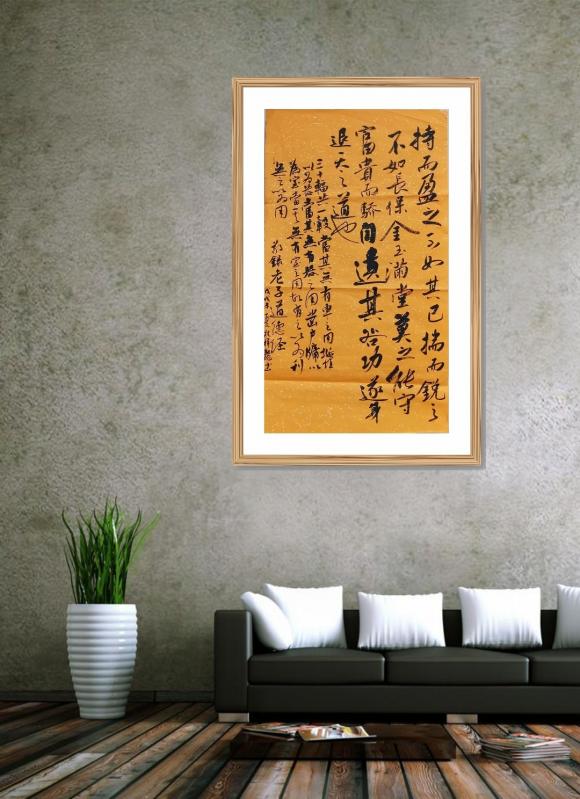 持而盈之不如其已揣而銳之
不如長保金玉滿堂莫之能守
富貴而驕自遺其咎功遂身
退天之道也
三十輻共一轂當其無有車之用埏埴
以為器當其無有器之用鑿戶牖以
為室當其無有室之用故有之以為利
無之以為用
敬錄老子道德經